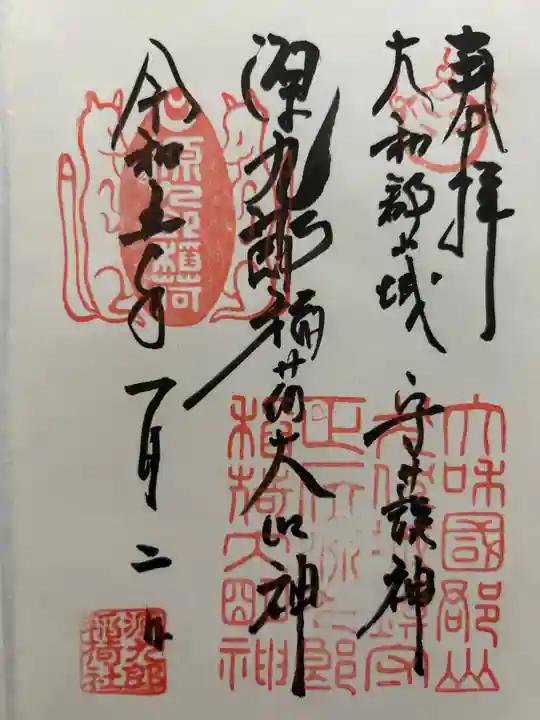 奉拝
大和郡山城 守護神
源九郎稲荷大明神
令和五年一月二日
大和國郡山
正一位源九郎
稲荷大明神
源九郎
稲荷社